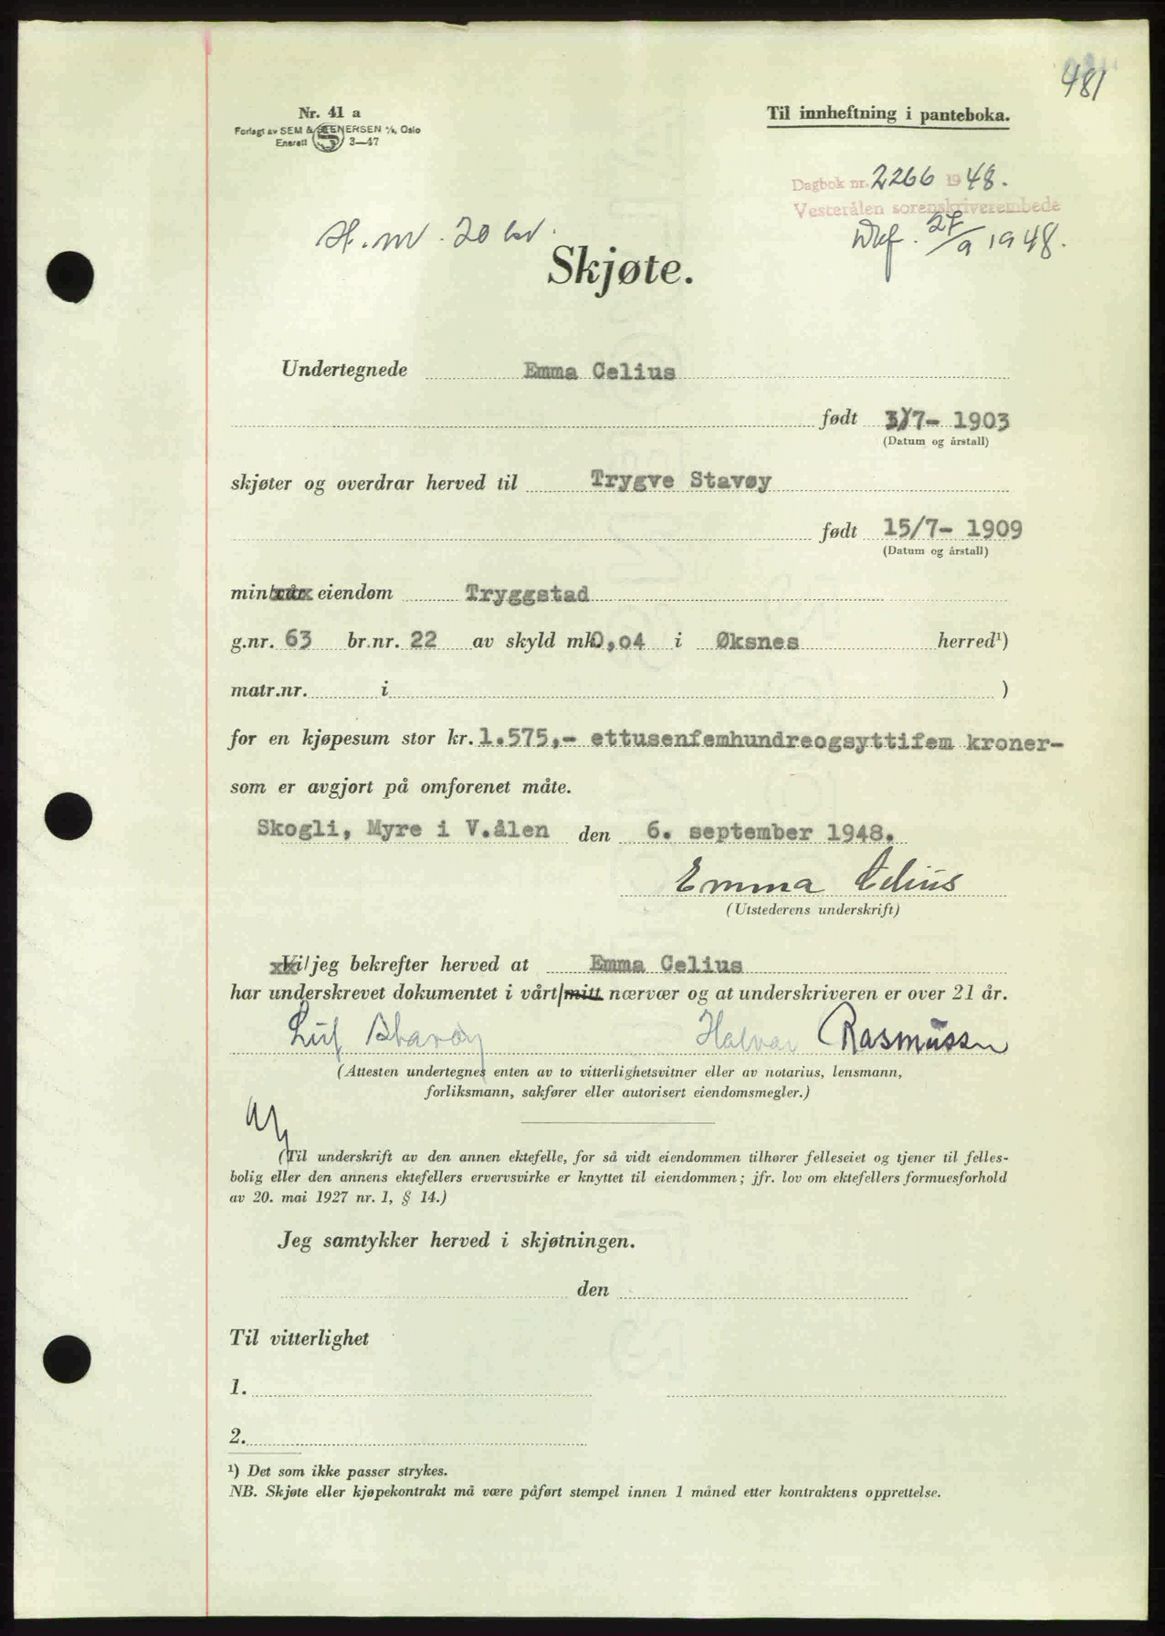 481
Nr. 41 a
Forlagt av SEM & STENERSEN A/S, Oslo
Enerett 3—47
Til innheftning i panteboka.
Dagbok nr. 2266 1948.
Vesterålen sorenskriverembede
27/9 1948.
20 kr.
Skjøte.
Undertegnede Emma Celius
født 3/7- 1903
(Datum og årstall)
skjøter og overdrar herved til Trygve Stavøy
født 15/7- 1909
(Datum og årstall)
min/vår eiendom Tryggstad
g.nr. 63 br.nr. 22 av skyld mk. 0,04 i Øksnes herred¹)
matr.nr. i )
for en kjøpesum stor kr. 1.575,- ettusenfemhundreogsyttifem kroner-
som er avgjort på omforenet måte.
Skogli, Myre i V.ålen den 6. september 1948.
Emma Celius
(Utstederens underskrift)
Vi/jeg bekrefter herved at Emma Celius
har underskrevet dokumentet i vårt/mitt nærvær og at underskriveren er over 21 år.
Stavøy Halvar Rasmussen
(Attesten undertegnes enten av to vitterlighetsvitner eller av notarius, lensmann,
forliksmann, sakfører eller autorisert eiendomsmegler.)
(Til underskrift av den annen ektefelle, for så vidt eiendommen tilhører felleseiet og tjener til felles-
bolig eller den annens ektefellers ervervsvirke er knyttet til eiendommen; jfr. lov om ektefellers formuesforhold
av 20. mai 1927 nr. 1, § 14.)
Jeg samtykker herved i skjøtningen.
den
Til vitterlighet
1.
2.
¹) Det som ikke passer strykes.
NB. Skjøte eller kjøpekontrakt må være påført stempel innen 1 måned etter kontraktens opprettelse.